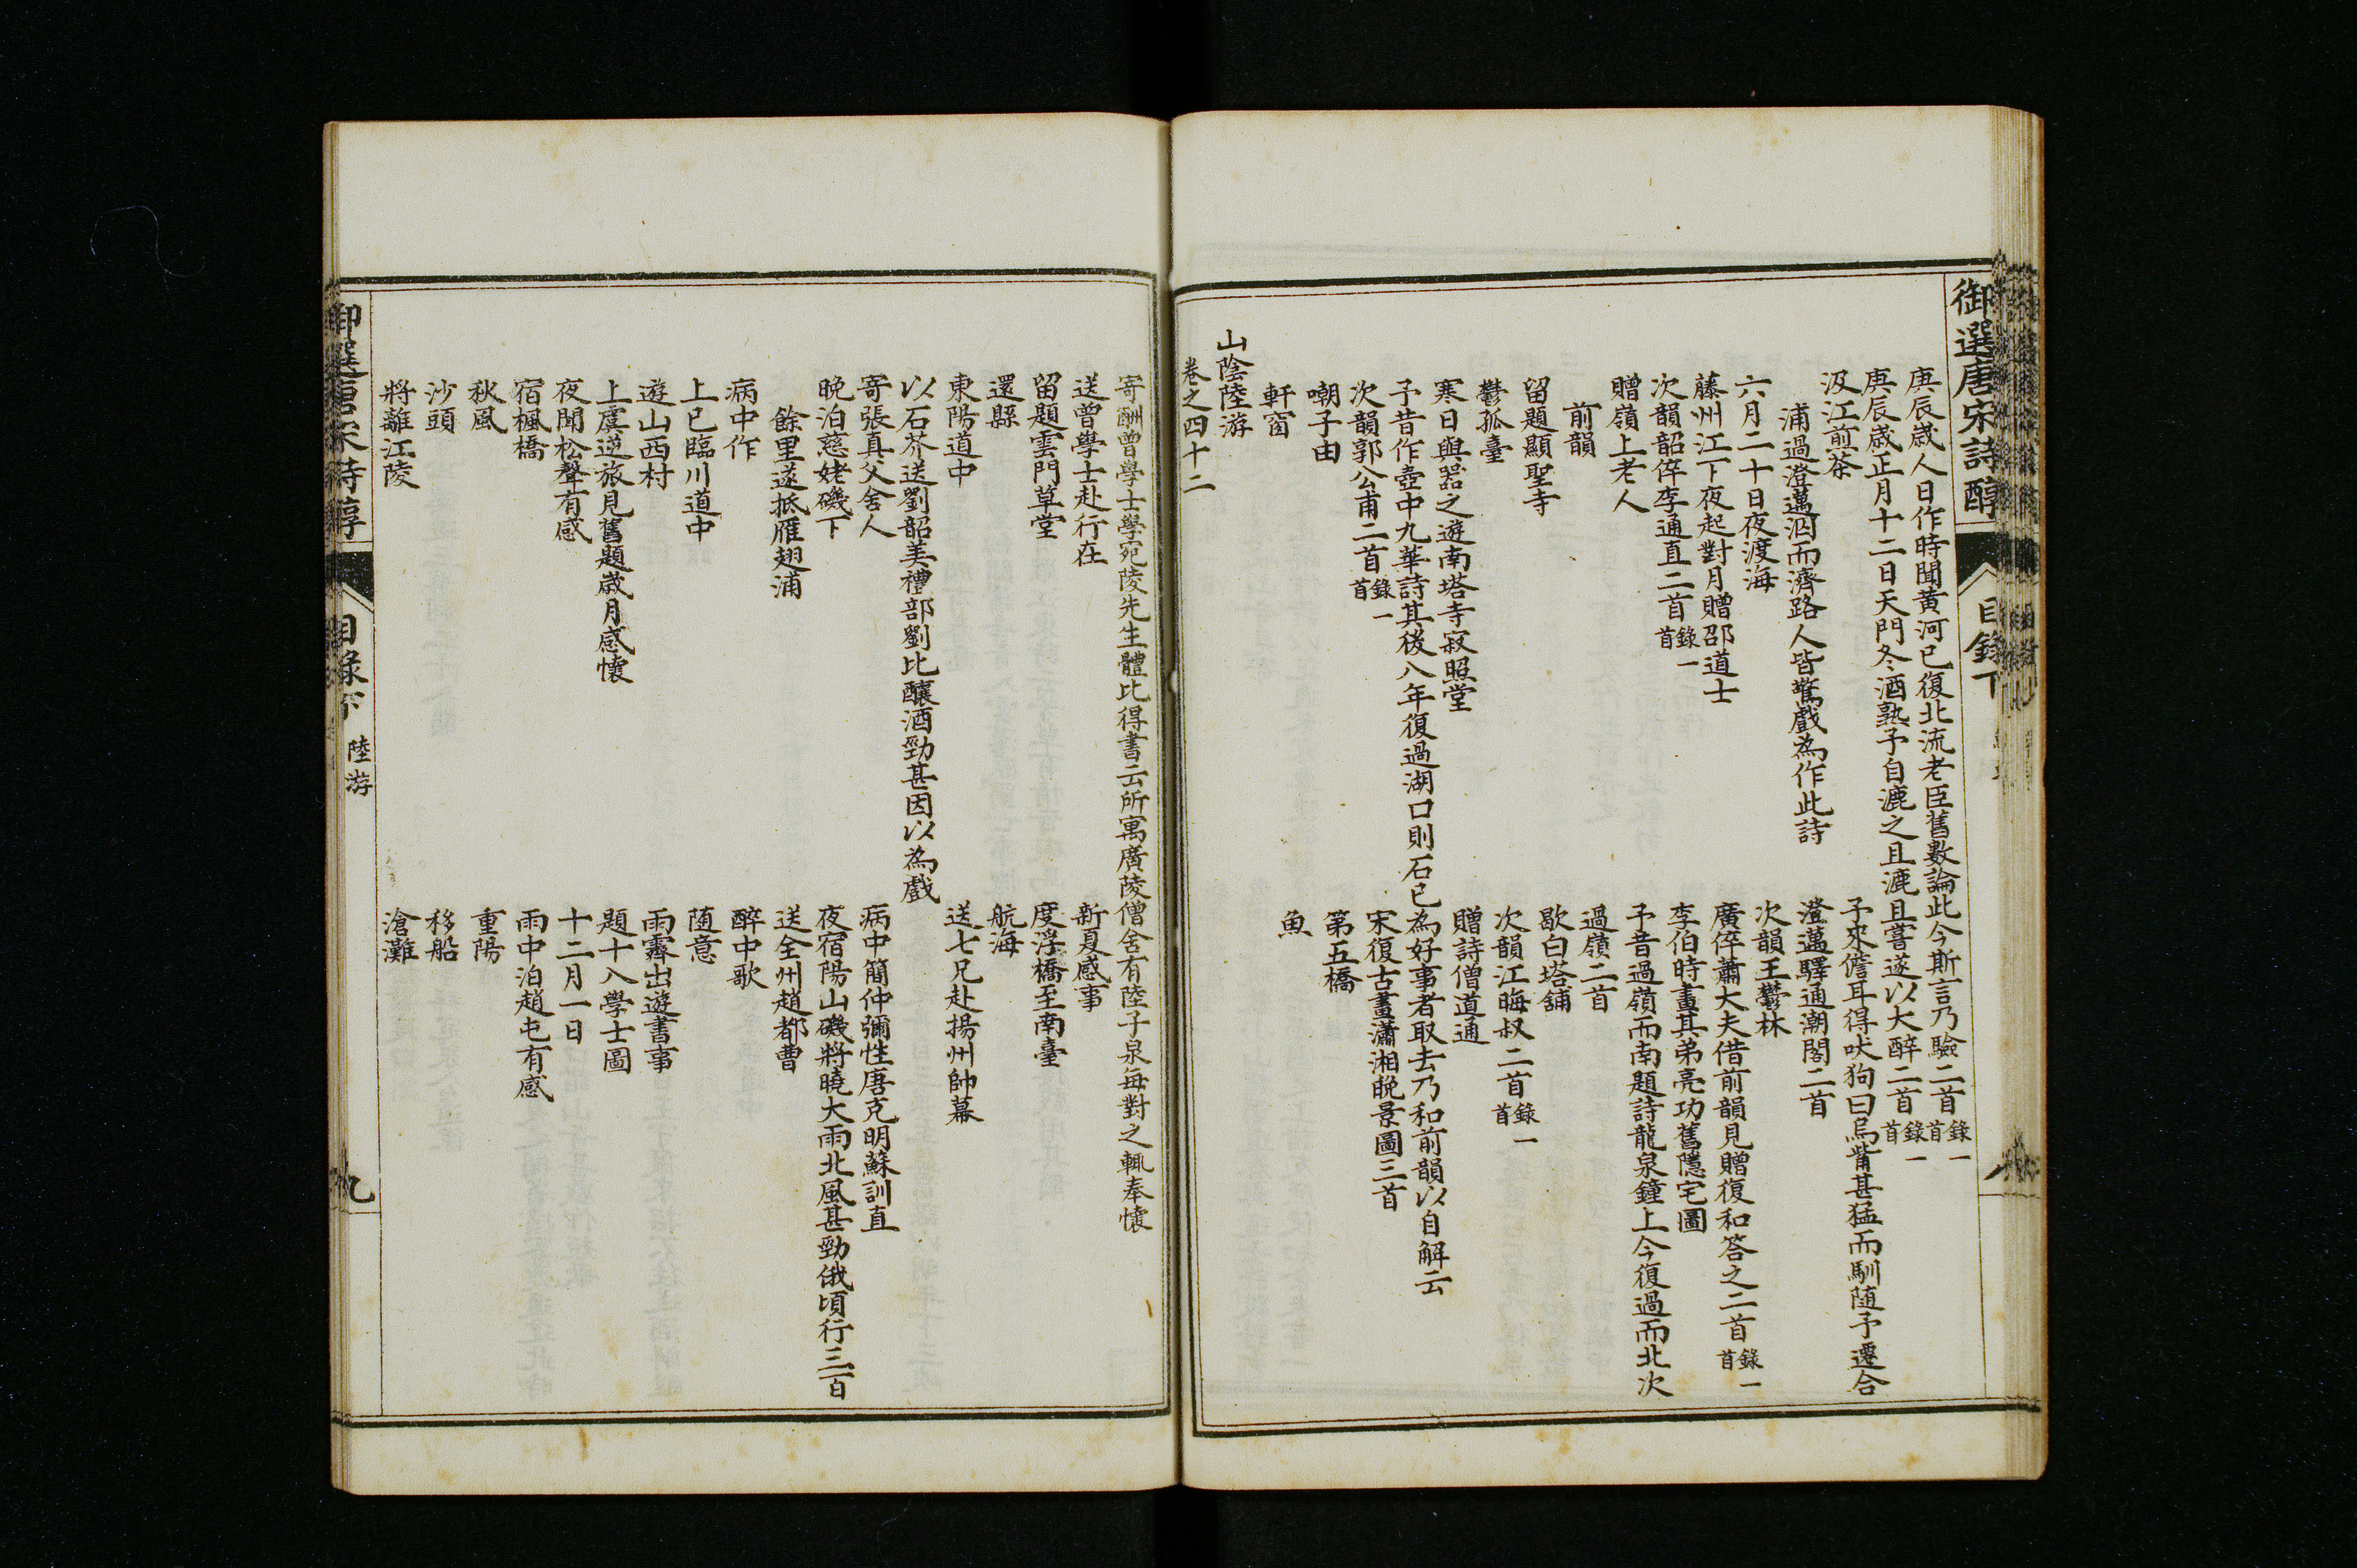 御選唐宋詩醇
目錄下
八
庚辰歲人日作時聞黃河已復北流老臣舊數論此今斯言乃驗二首錄一首
庚辰歲正月十二日天門冬酒熟予自漉之且漉且嘗遂以大醉二首錄一首
汲江煎茶
予來儋耳得吠狗曰烏觜甚猛而馴隨予遷合
浦過澄邁泅而濟路人皆驚戲為作此詩
澄邁驛通潮閣二首
六月二十日夜渡海
次韻王鬱林
藤州江下夜起對月贈邵道士
廣倅蕭大夫借前韻見贈復和答之二首錄一首
次韻韶倅李通直二首錄一首
李伯時畫其弟亮功舊隱宅圖
贈嶺上老人
予昔過嶺而南題詩龍泉鐘上今復過而北次
前韻
過嶺二首
留題顯聖寺
歇白塔舖
鬱孤臺
次韻江晦叔二首錄一首
寒日與器之遊南塔寺寂照堂
贈詩僧道通
予昔作壺中九華詩其後八年復過湖口則石已為好事者取去乃和前韻以自解云
次韻郭公甫二首錄一首
宋復古畫瀟湘晚景圖三首
嘲子由
第五橋
軒窗
魚
山陰陸游
卷之四十二
寄酬曾學士學宛陵先生體比得書云所寓廣陵僧舍有陸子泉每對之輒奉懷
送曾學士赴行在
新夏感事
留題雲門草堂
度浮橋至南臺
還縣
航海
東陽道中
送七兄赴揚州帥幕
以石芥送劉韶美禮部劉比釀酒勁甚因以為戲
寄張真父舍人
病中簡仲彌性唐克明蘇訓直
晚泊慈姥磯下
夜宿陽山磯將曉大雨北風甚勁俄頃行三百
餘里遂抵雁翅浦
送全州趙都曹
病中作
醉中歌
上巳臨川道中
隨意
遊山西村
雨霽出遊書事
上虞逆旅見舊題歲月感懷
題十八學士圖
夜聞松聲有感
十二月一日
宿楓橋
雨中泊趙屯有感
秋風
重陽
沙頭
移船
將離江陵
滄灘
御選唐宋詩醇
目錄下
陸游
九